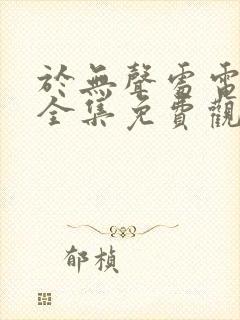 於無聲雷電
全集免費觀
郁楨